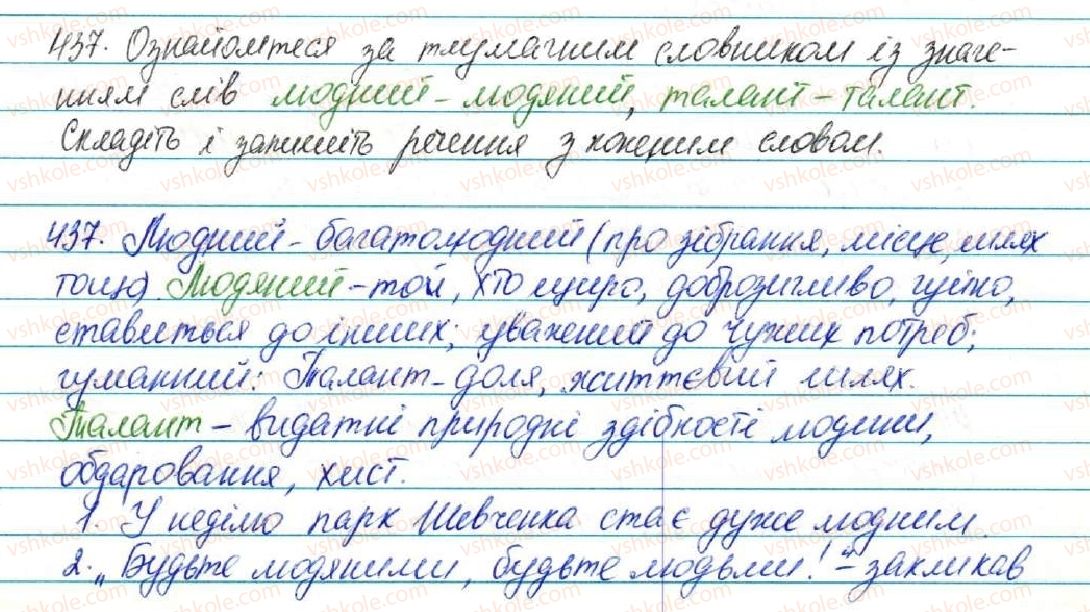 437. Ознайомтеся за тлумачним словником із значе-
нням слів людний – людяний, талант – талант.
Складіть і запишіть речення з кожним словом.
437. Людний – багатолюдний (про зібрання, місце, шлях
тощо). Людяний – той, хто щиро, доброзичливо, чуйно,
ставиться до інших; уважений до чужих потреб;
гуманний. Талант – доля, життєвий шлях.
Талант – видатні природні здібності людини,
обдаровання, хист.
1. У неділю парк Шевченка стає дуже людним.
2. „Будьте людяними, будьте людьми!" – закликав